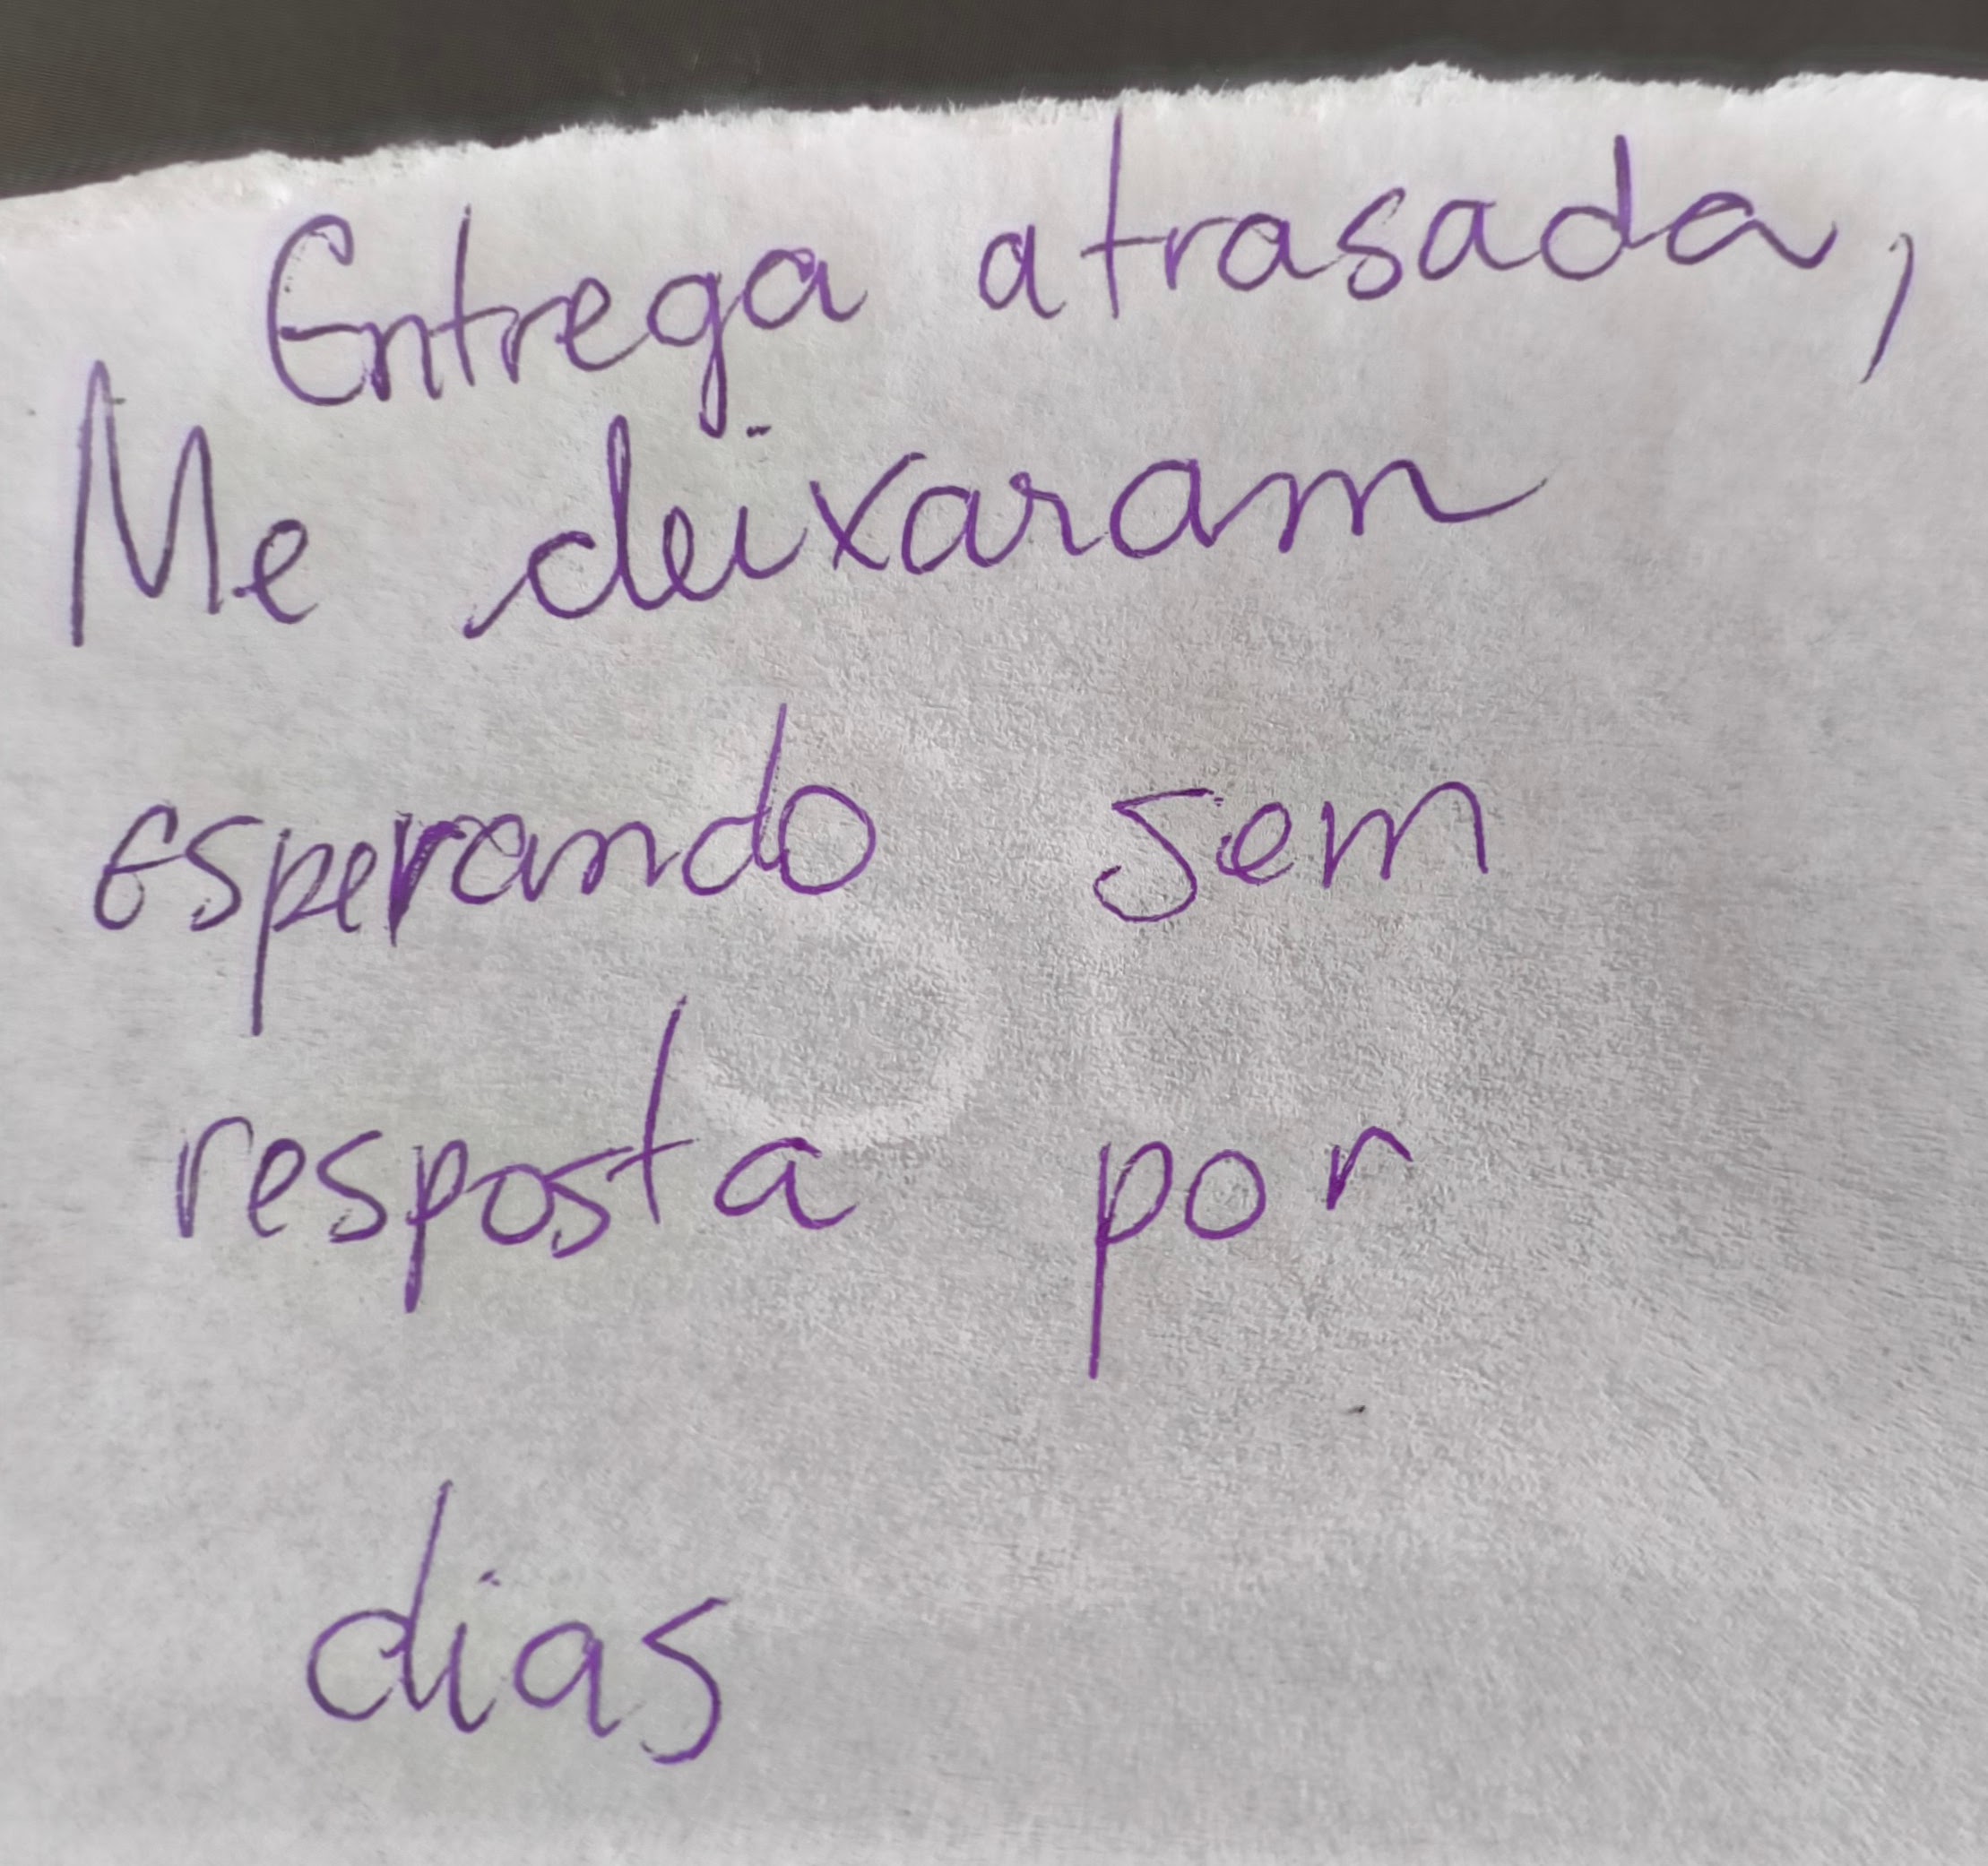 Entrega atrasada,
Me deixaram
esperando sem
resposta por
dias